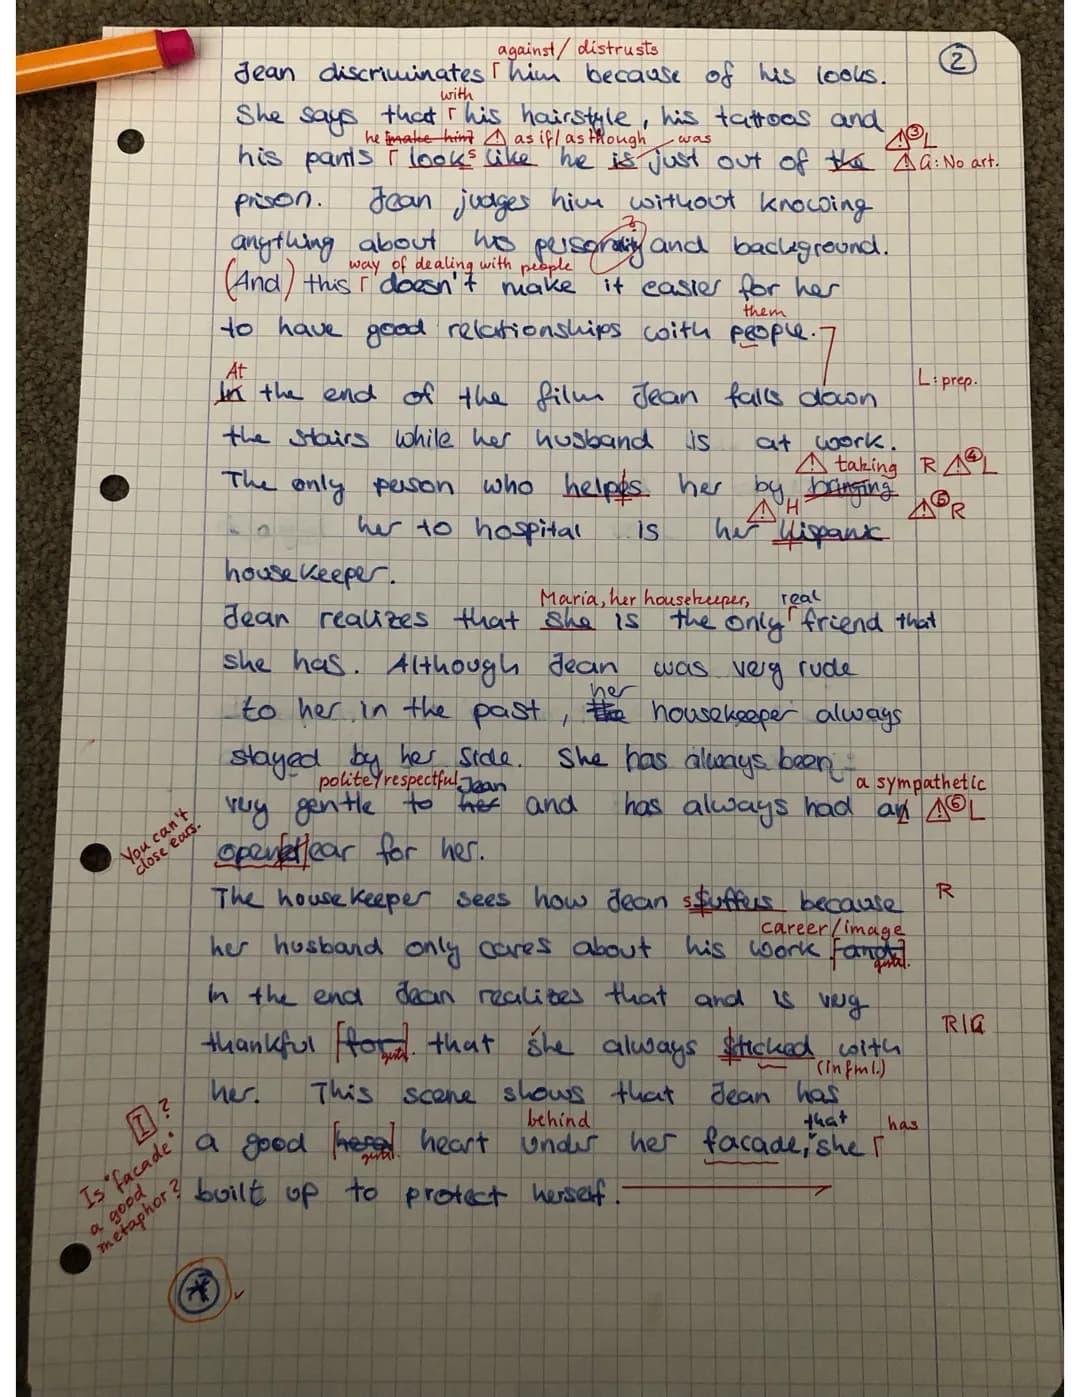 against/ distrusts
②
Jean discriminates Γ him because of his looks.
with
She says that Γ his hairstyle, his tattoos and
he make him ⚠ as if/as though was
⚠③L
his pants Γ looks like he is just out of the
⚠G: No art.
prison. Jean judges him without knowing
?
anything about his and background.
way of dealing with people
(And) this Γ doesn't make it easier for her
them
to have good relationships with people.
At
L: prep.
In the end of the film Jean falls down
the stairs while her husband is at work.
⚠ taking
R ⚠④L
The only person who helpes her by bringing
⚠ H
⚠⑤R
her to hospital is her hispanic
housekeeper.
Maria, her housekeeper, real
Jean realizes that she is the only Γ friend that
she has. Although Jean was very rude
her
to her in the past, the housekeeper always
stayed by her side. She has always been
polite/respectful Jean
a sympathetic
very gentle to her and has always had an
⚠⑥L
You can't
close ears.
ear for her.
The housekeeper sees how Jean suffers because
R
career/image
her husband only cares about his work [and]
gestr.
In the end Jean realizes that and is very
R/G
thankful [for] that she always sticked with
gestr.
(infml.)
her. This scene shows that Jean has
behind that has
a good heart under her facade, she Γ
gestr.
I?
Is "facade"
a good
metaphor?
built up to protect herself.
*